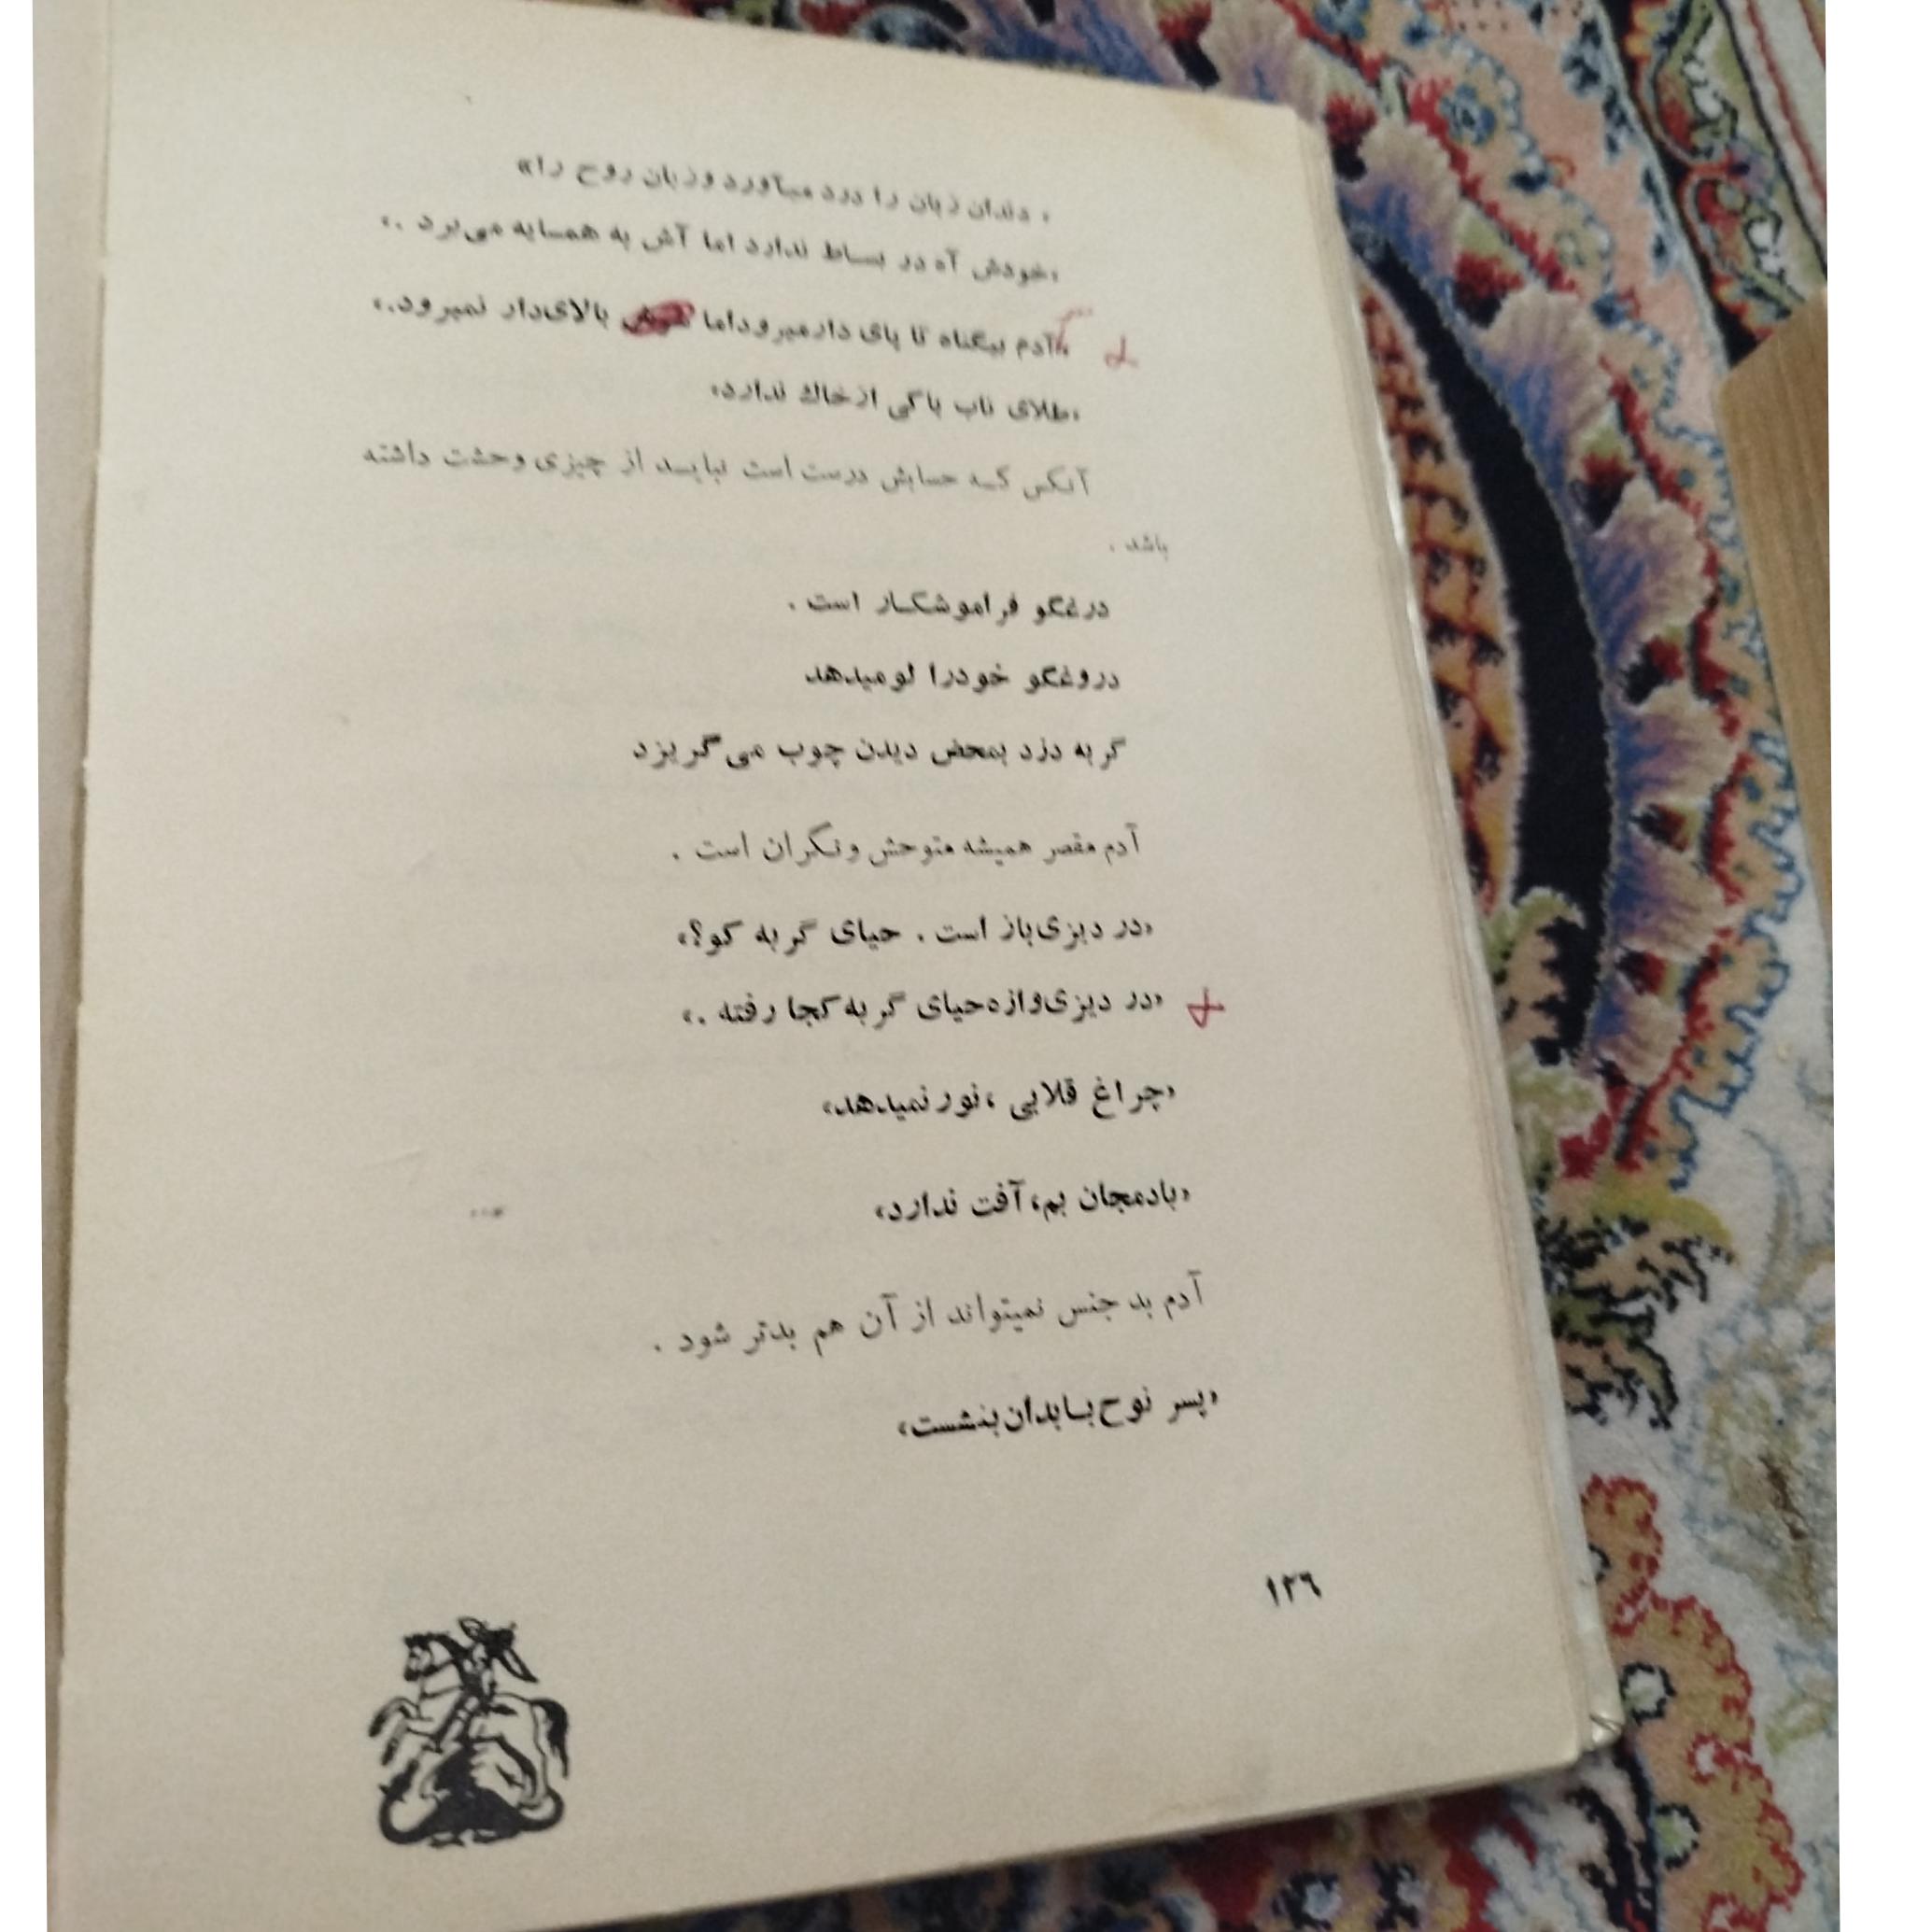 « دندان زبان را درد میآورد وزبان روح را»
«خودش آه در بساط ندارد اما آش به همسایه می‌برد .»
«آدم بیگناه تا پای دارمیرود‌اما بالای‌دار نمیرود.»
«طلای ناب باکی از‌خاك ندارد»
آنکس که حسابش درست است نبایـد از چیزی وحشت داشته
باشد .
درغگو فراموشکـار است .
دروغگو خودرا لو‌میدهد
گربه دزد بمحض دیدن چوب می‌گریزد
آدم مقصر همیشه متوحش و‌نگران است .
«در دیزی‌باز است . حیای گربه کو؟»
«در دیزی‌وازه‌حیای گربه‌کجا رفته .»
«چراغ قلابی ، نور‌نمیدهد»
«بادمجان بم، آفت ندارد»
آدم بد جنس نمیتواند از آن هم بدتر شود .
«پسر نوح‌بـابدان‌بنشست»
١٣٦